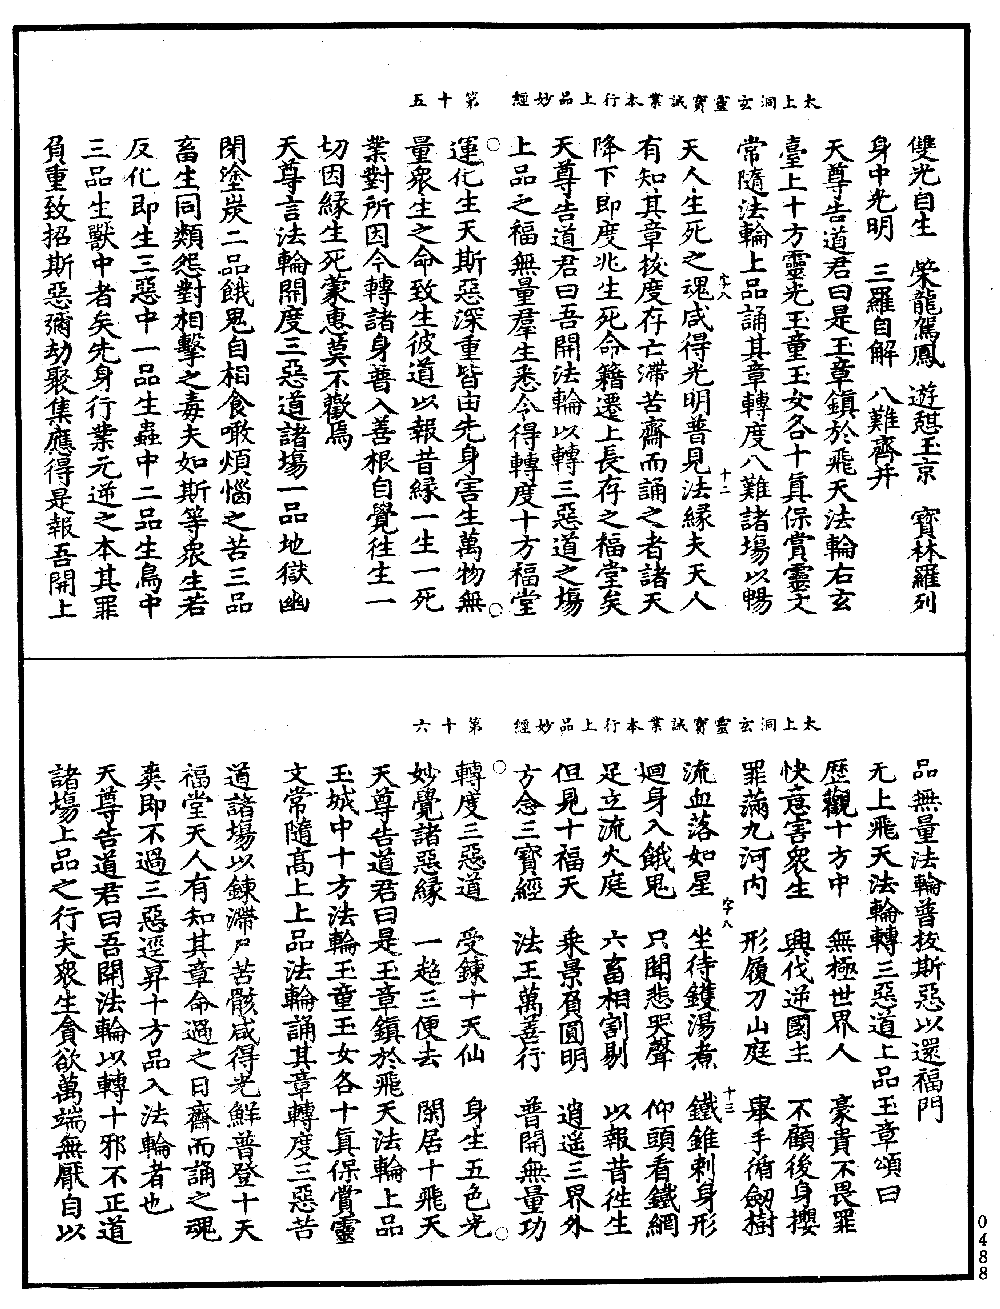 太上洞玄靈寶誡業本行上品妙經　第十五
雙光自生　榮龍駕鳳　遊憇玉京　寶林羅列
身中光明　三羅自解　八難齊并
天尊告道君曰是玉章鎮於飛天法輪右玄
臺上十方靈光玉童玉女各十真保賞靈文
常隨法輪上品誦其章轉度八難諸場以暢
字八　十二
天人生死之魂咸得光明普見法緣夫天人
有知其章校度存亡滯苦齋而誦之者諸天
降下即度兆生死命籍遷上長存之福堂矣
天尊告道君曰吾開法輪以轉三惡道之場
上品之福無量羣生悉令得轉度十方福堂
運化生天斯惡深重皆由先身害生萬物無
量衆生之命致生彼道以報昔緣一生一死
業對所因今轉諸身善入善根自覺往生一
切因緣生死蒙惠莫不歡焉
天尊言法輪開度三惡道諸場一品地獄幽
閉塗炭二品餓鬼自相食噉煩惱之苦三品
畜生同類怨對相擊之毒夫如斯等衆生若
反化即生三惡中一品生蟲中二品生鳥中
三品生獸中者矣先身行業元逆之本其罪
負重致招斯惡彌劫聚集應得是報吾開上
太上洞玄靈寶誡業本行上品妙經　第十六
品無量法輪普拔斯惡以還福門
无上飛天法輪轉三惡道上品玉章頌曰
歷觀十方中　無極世界人　豪貴不畏罪
快意害衆生　興伐逆國主　不顧後身攖
罪滿九河內　形履刀山庭　舉手循劒樹
字八　十三
流血落如星　坐待鑊湯煮　鐵錐刺身形
迴身入餓鬼　只聞悲哭聲　仰頭看鐵網
足立流火庭　六畜相割剔　以報昔往生
但見十福天　乘景頁圓明　逍遥三界外
方念三寶經　法王萬善行　普開無量功
轉度三惡道　受鍊十天仙　身生五色光
妙覺諸惡緣　一超三便去　閑居十飛天
天尊告道君曰是玉章鎮於飛天法輪上品
玉城中十方法輪玉童玉女各十真保賞靈
文常隨高上上品法輪誦其章轉度三惡苦
道諸場以鍊滯尸苦骸咸得光鮮普登十天
福堂天人有知其章命過之日齋而誦之魂
爽即不過三惡逕昇十方品入法輪者也
天尊告道君曰吾開法輪以轉十邪不正道
諸場上品之行夫衆生貪欲萬端無厭自以
0488